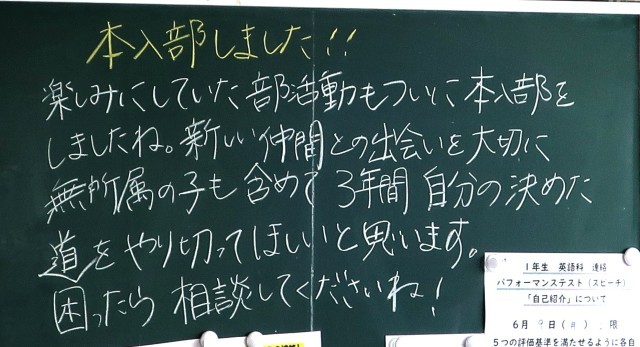 本入部しました!!
楽しみにしていた部活動もついに本入部を
しましたね。新しい仲間との出会いを大切に
無所属の子も含めて3年間自分の決めた
道をやり切ってほしいと思います。
困ったら相談してくださいね!
1年生 英語科 連絡
パフォーマンステスト(スピーチ)
「自己紹介」について
6月9日(月) 限
5つの評価基準を満たせるように各自